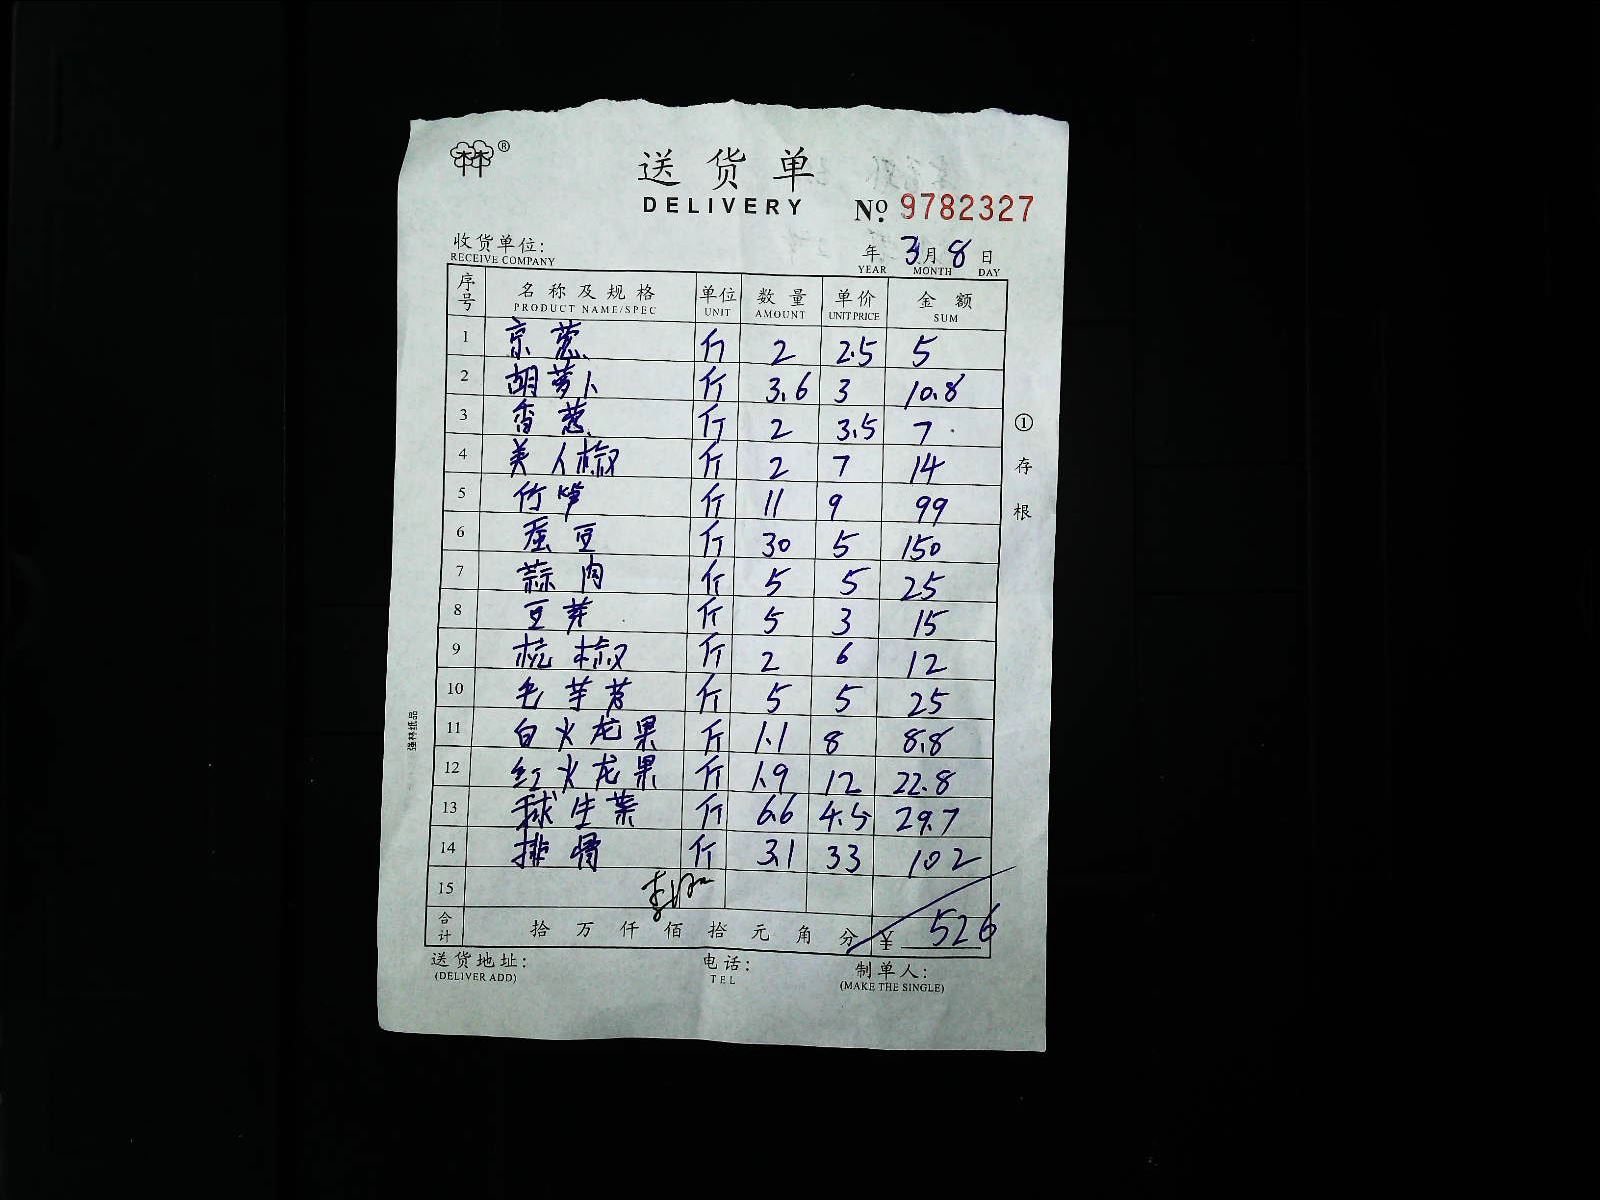 林®
送货单
DELIVERY
№ 9782327
收货单位:
RECEIVE COMPANY
年 3月 8日
YEAR MONTH DAY
序号 名称及规格 单位 数量 单价 金额
PRODUCT NAME/SPEC UNIT AMOUNT UNIT PRICE SUM
1 京葱 斤 2 2.5 5
2 胡萝卜 斤 3.6 3 10.8
3 香葱 斤 2 3.5 7
4 美人椒 斤 2 7 14
5 竹笋 斤 11 9 99
6 蚕豆 斤 30 5 150
7 蒜肉 斤 5 5 25
8 豆芽 斤 5 3 15
9 杭椒 斤 2 6 12
10 毛芋艿 斤 5 5 25
11 白火龙果 斤 1.1 8 8.8
12 红火龙果 斤 1.9 12 22.8
13 球生菜 斤 6.6 4.5 29.7
14 排骨 斤 3.1 33 102
15
合计 拾 万 仟 佰 拾 元 角 分 ¥ 526
送货地址: 电话: 制单人:
(DELIVER ADD) TEL (MAKE THE SINGLE)
①存根
强林纸品